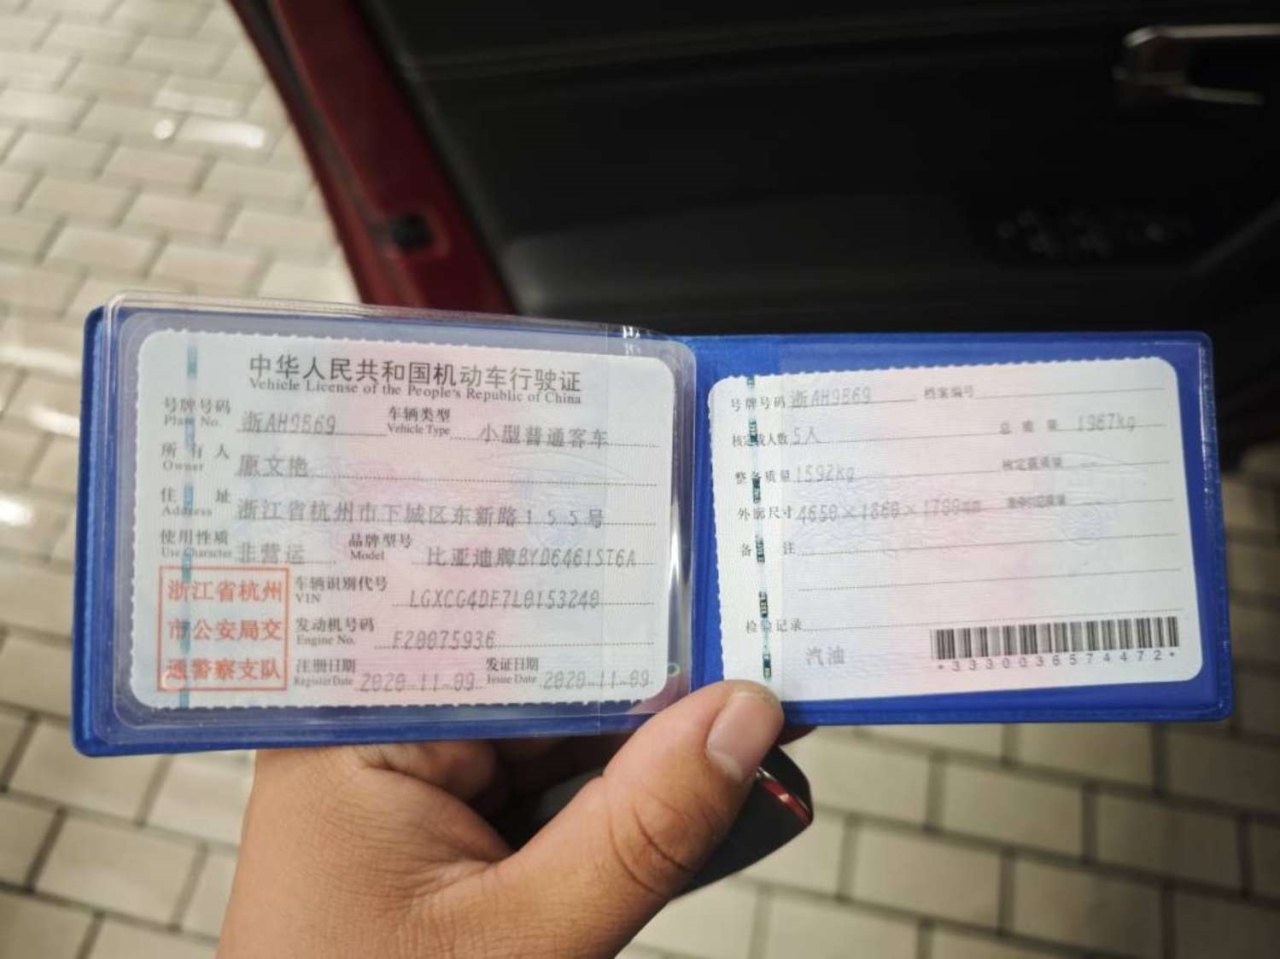 中华人民共和国机动车行驶证
Vehicle License of the People's Republic of China
号牌号码 浙AH9B69 车辆类型 小型普通客车
Plate No. Vehicle Type
所有人 原文艳
Owner
住址 浙江省杭州市下城区东新路155号
Address
使用性质 非营运 品牌型号 比亚迪牌BYD6461ST6A
Use Character Model
浙江省杭州
市公安局交
通警察支队
车辆识别代号 LGXCG4DF7L0153240
VIN
发动机号码 F20075936
Engine No.
注册日期 2020-11-09 发证日期 2020-11-09
Register Date Issue Date
号牌号码 浙AH9B69 档案编号
核定载人数 5人 总质量 1967kg
整备质量 1592kg 核定载质量 --
外廓尺寸 4650×1860×1700mm
备注
检验记录
汽油
*3330036574472*